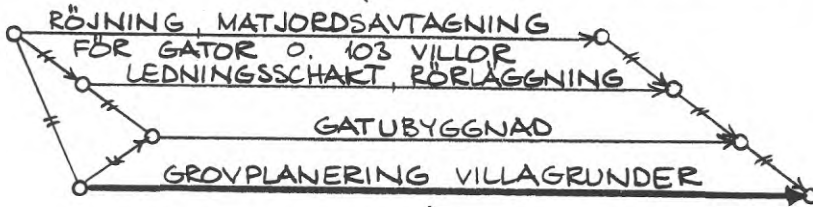 RÖJNING, MATJORDSAVTAGNING
FÖR GATOR O. 103 VILLOR
LEDNINGSSCHAKT, RÖRLÄGGNING
GATUBYGGNAD
GROVPLANERING VILLAGRUNDER